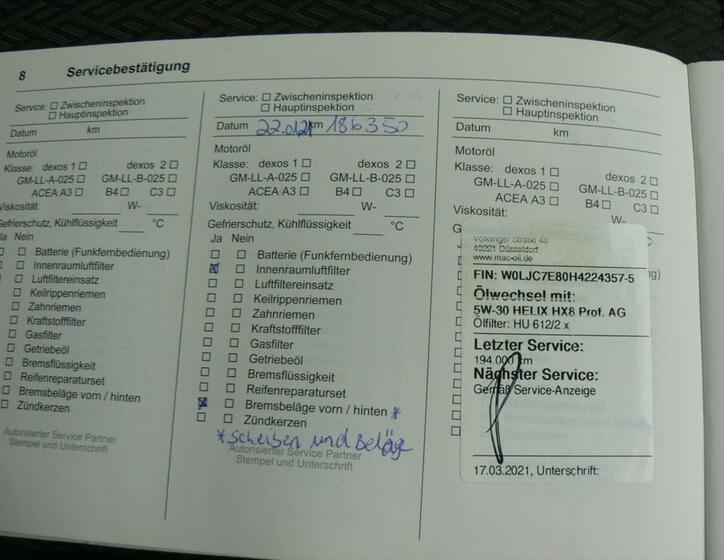 8 Servicebestätigung
Service: ☐ Zwischeninspektion
☐ Hauptinspektion
Datum km
Motoröl
Klasse: dexos 1 ☐ dexos 2 ☐
GM-LL-A-025 ☐ GM-LL-B-025 ☐
ACEA A3 ☐ B4 ☐ C3 ☐
Viskosität: W-
Gefrierschutz, Kühlflüssigkeit °C
Ja Nein
☐ Batterie (Funkfernbedienung)
☐ Innenraumluftfilter
☐ Luftfiltereinsatz
☐ Keilrippenriemen
☐ Zahnriemen
☐ Kraftstofffilter
☐ Gasfilter
☐ Getriebeöl
☐ Bremsflüssigkeit
☐ Reifenreparaturset
☐ Bremsbeläge vorn / hinten
☐ Zündkerzen
Autorisierter Service Partner
Stempel und Unterschrift
Service: ☐ Zwischeninspektion
☐ Hauptinspektion
Datum km 186350
Motoröl
Klasse: dexos 1 ☐ dexos 2 ☐
GM-LL-A-025 ☐ GM-LL-B-025 ☐
ACEA A3 ☐ B4 ☐ C3 ☐
Viskosität: W-
Gefrierschutz, Kühlflüssigkeit °C
Ja Nein
☐ ☐ Batterie (Funkfernbedienung)
☒ ☐ Innenraumluftfilter
☐ ☐ Luftfiltereinsatz
☐ ☐ Keilrippenriemen
☐ ☐ Zahnriemen
☐ ☐ Kraftstofffilter
☐ ☐ Gasfilter
☐ ☐ Getriebeöl
☐ ☐ Bremsflüssigkeit
☐ ☐ Reifenreparaturset
☒ ☐ Bremsbeläge vorn / hinten *
☐ ☐ Zündkerzen
*Scheiben und Beläge
Autorisierter Service Partner
Stempel und Unterschrift
Service: ☐ Zwischeninspektion
☐ Hauptinspektion
Datum km
Motoröl
Klasse: dexos 1 ☐ dexos 2 ☐
GM-LL-A-025 ☐ GM-LL-B-025 ☐
ACEA A3 ☐ B4 ☐ C3 ☐
Viskosität: W-
40221 Düsseldorf
www.mac-oil.de
FIN: W0LJC7E80H4224357-5
Ölwechsel mit:
5W-30 HELIX HX8 Prof. AG
Ölfilter: HU 612/2 x
Letzter Service:
194.000 km
Nächster Service:
Gemäß Service-Anzeige
17.03.2021, Unterschrift: